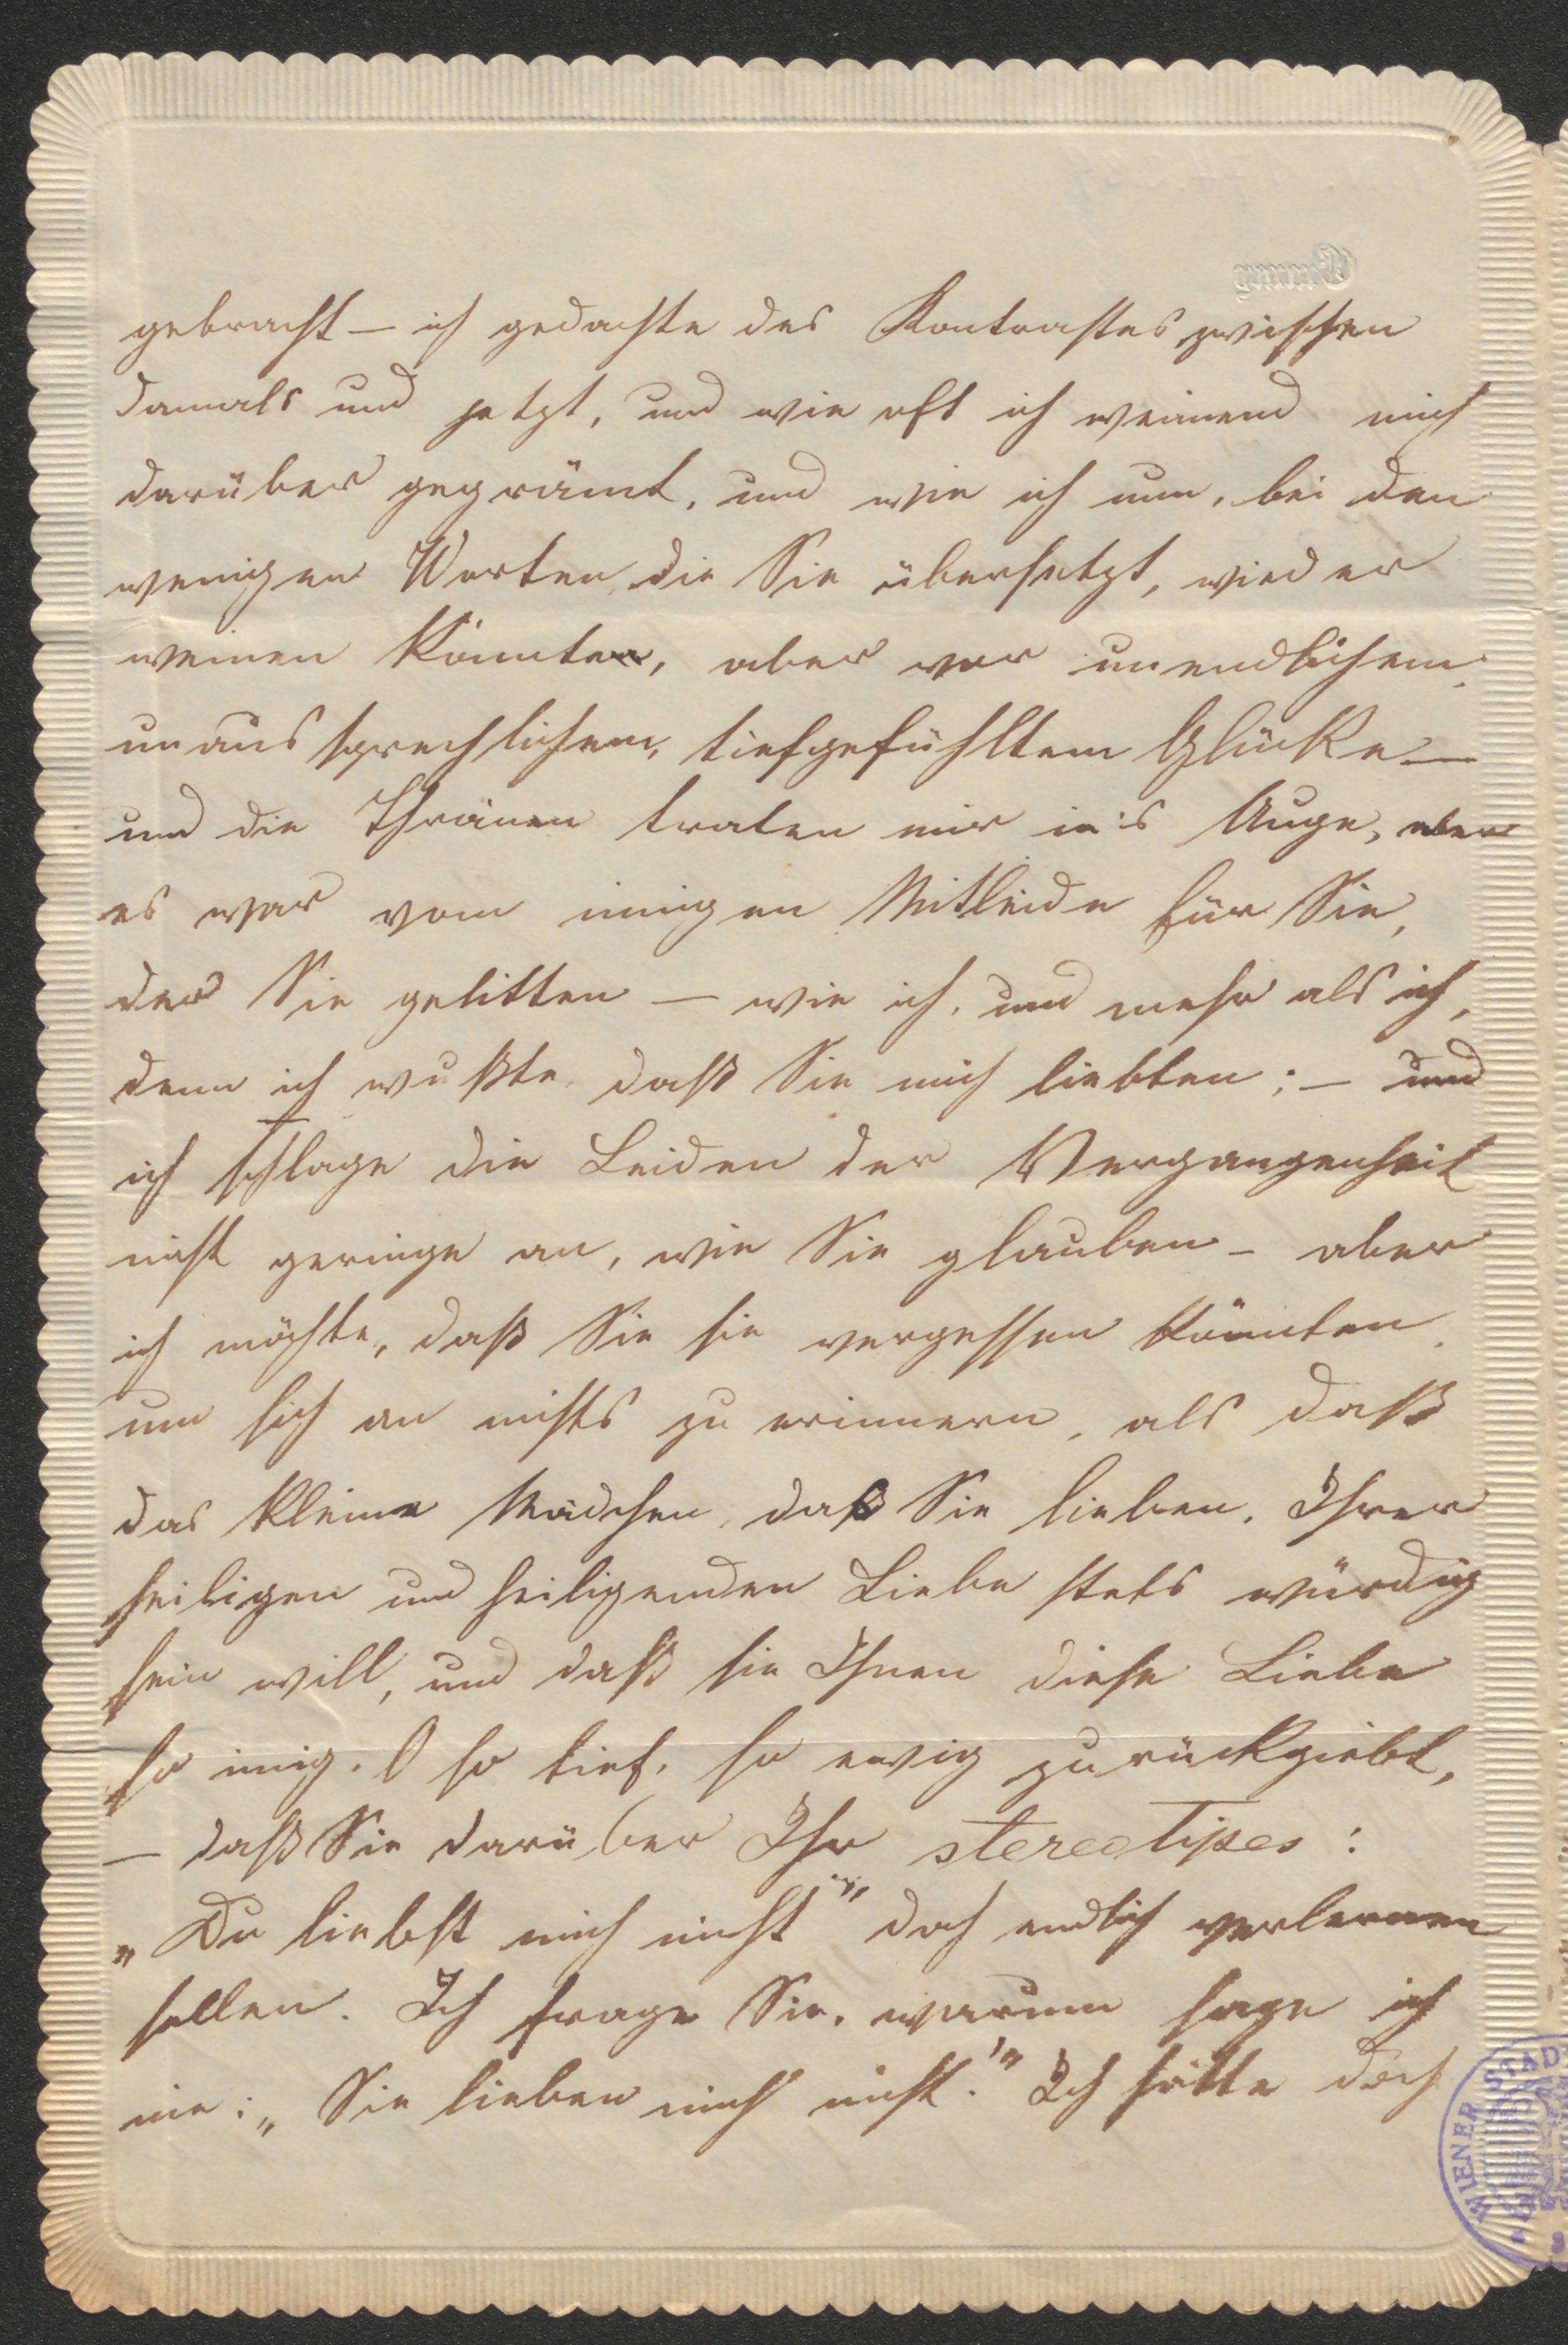 gebracht – ich gedachte des Kontrastes zwischen
damals und jetzt, und wie oft ich weinend mich
darüber gegrämt, und wie ich nun, bei den
wenigen Worten, die Sie übersetzt, wieder
weinen könnte, aber vor unendlichem,
unaussprechlichem, tiefgefühltem Glücke –
und die Thränen traten mir in's Auge, aber
es war vom innigen Mitleide für Sie,
der Sie gelitten – wie ich, und mehr als ich,
denn ich wußte, daß Sie mich liebten; – und
ich schlage die Leiden der Vergangenheit
nicht geringe an, wie Sie glauben – aber
ich möchte, daß Sie sie vergessen könnten,
um sich an nichts zu erinnern, als daß
das kleine Mädchen, daß Sie lieben, Ihrer
heiligen und heiligenden Liebe stets würdig
sein will, und daß sie Ihnen diese Liebe
so innig, O so tief, so ewig zurückgiebt,
– daß Sie darüber Ihr stereotipes:
„Du liebst mich nicht" doch endlich verlernen
sollen. Ich frage Sie, warum sage ich
nie: „Sie lieben mich nicht!" Ich hätte doch
WIENER STAD